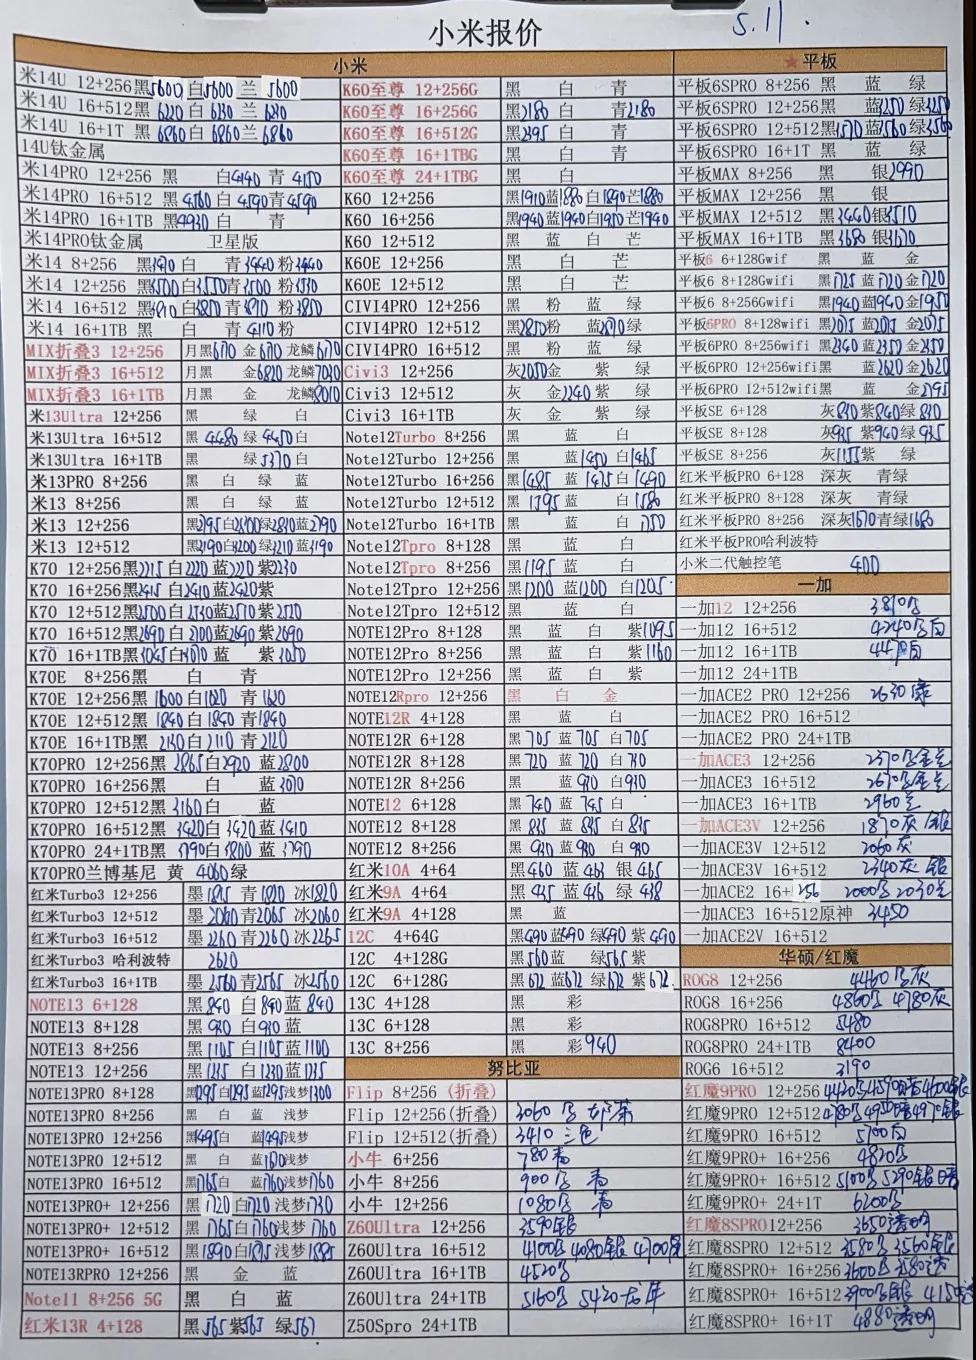 小米报价
5.11.
小米
米14U 12+256 黑5600 白5600 兰 5600
米14U 16+512 黑 6220 白 6230 兰 6230
米14U 16+1T 黑 6860 白 6860 兰 6860
14U钛金属
米14PRO 12+256 黑 白4140 青 4150
米14PRO 16+512 黑 4560 白 4590 青4590
米14PRO 16+1TB 黑4930 白 青
米14PRO钛金属 卫星版
米14 8+256 白 青 粉
米14 12+256 黑3500 白 青3500 粉
米14 16+512 白3850 青 粉3850
米14 16+1TB 黑 白 青4110 粉
MIX折叠3 12+256 月黑6170 金6170 龙鳞6170
MIX折叠3 16+512 月黑 金6820 龙鳞
MIX折叠3 16+1TB 月黑 金 龙鳞
米13Ultra 12+256 黑 绿 白
米13Ultra 16+512 黑 4480 绿 4450 白
米13Ultra 16+1TB 黑 绿5370 白
米13PRO 8+256 黑 白 绿 蓝
米13 8+256 黑 白 绿 蓝
米13 12+256 黑2795 绿2810 蓝2790
米13 12+512 黑3190 白3200 绿3210 蓝3190
K70 12+256 黑2215 白2220 蓝2220 紫2230
K70 16+256 黑2415 白2410 蓝2420 紫
K70 12+512 黑2500 白 蓝2510 紫2520
K70 16+512 黑2690 白 2700 蓝2690 紫2690
K70 16+1TB 黑3045 白 蓝 紫3050
K70E 8+256 黑 白 青
K70E 12+256 黑 1600 白1620 青 1620
K70E 12+512 黑 1840 白1840 青1840
K70E 16+1TB 黑 2130 白2110 青2120
K70PRO 12+256 黑 2865 白2920 蓝2800
K70PRO 16+256 黑 白 蓝3070
K70PRO 12+512 黑 3160 白 蓝
K70PRO 16+512 黑 3420 白3420 蓝3410
K70PRO 24+1TB 黑 3790 白3800 蓝 3790
K70PRO兰博基尼 黄 4060 绿
红米Turbo3 12+256 墨1815 青1810 冰1820
红米Turbo3 12+512 墨2060 青2065 冰2060
红米Turbo3 16+512 墨2260 青2260 冰2265
红米Turbo3 哈利波特 2620
红米Turbo3 16+1TB 墨2560 青2565 冰2560
NOTE13 6+128 黑840 白840 蓝840
NOTE13 8+128 黑930 白930 蓝
NOTE13 8+256 黑1105 白1105 蓝1100
NOTE13 12+256 黑1235 白1230 蓝1235
NOTE13PRO 8+128 黑1295 白1295 蓝1295 浅梦1300
NOTE13PRO 8+256 黑 白 蓝 浅梦
NOTE13PRO 12+256 黑1495 白 蓝1495 浅梦
NOTE13PRO 12+512 黑 白 蓝1610 浅梦
NOTE13PRO 16+512 黑1765 白 蓝1760 浅梦1760
NOTE13PRO+ 12+256 黑 1720 白1720 浅梦1730
NOTE13PRO+ 12+512 黑1765 白1760 浅梦1760
NOTE13PRO+ 16+512 黑1890 白 浅梦1885
NOTE13RPRO 12+256 黑 金 蓝
Note11 8+256 5G 黑 白 蓝
红米13R 4+128 黑565 紫565 绿567
K60至尊 12+256G 黑 白 青
K60至尊 16+256G 黑2180 白 青2180
K60至尊 16+512G 黑2395 白 青
K60至尊 16+1TBG 黑 白 青
K60至尊 24+1TBG 黑 白
K60 12+256 黑1910 蓝1880 白1890 芒1880
K60 16+256 黑1940 蓝1940 白1950 芒1940
K60 12+512 黑 蓝 白 芒
K60E 12+256 黑 白 芒
K60E 12+512 黑 白 芒
CIVI4PRO 12+256 黑 粉 蓝 绿
CIVI4PRO 12+512 黑2850 粉 蓝 绿
CIVI4PRO 16+512 黑 粉 蓝 绿
Civi3 12+256 灰2050 金 紫 绿
Civi3 12+512 灰 金2240 紫 绿
Civi3 16+1TB 灰 金 紫 绿
Note12Turbo 8+256 黑 蓝 白
Note12Turbo 12+256 黑 蓝1450 白1465
Note12Turbo 16+256 黑1485 蓝 1475 白1490
Note12Turbo 12+512 黑 1595 蓝 白1580
Note12Turbo 16+1TB 黑 蓝 白 1750
Note12Tpro 8+128 黑 蓝 白
Note12Tpro 8+256 黑1195 蓝 白
Note12Tpro 12+256 黑1200 蓝1200 白1205
Note12Tpro 12+512 黑 蓝 白
NOTE12Pro 8+128 黑 蓝 白 紫1095
NOTE12Pro 8+256 黑 蓝 白 紫1160
NOTE12Pro 12+256 黑 蓝 白 紫
NOTE12Rpro 12+256 黑 白 金
NOTE12R 4+128 黑 蓝 白
NOTE12R 6+128 黑 705 蓝 705 白705
NOTE12R 8+128 黑720 蓝 720 白730
NOTE12R 8+256 黑 蓝910 白910
NOTE12 6+128 黑740 蓝 745 白
NOTE12 8+128 黑 835 蓝 835 白 835
NOTE12 8+256 黑 930 蓝930 白 930
红米10A 4+64 黑460 蓝 463 银 465
红米9A 4+64 黑435 蓝436 绿 438
红米9A 4+128 黑 蓝
12C 4+64G 黑490 蓝490 绿490 紫 490
12C 4+128G 黑560 蓝 绿565 紫
12C 6+128G 黑672 蓝672 绿672 紫672.
13C 4+128 黑 彩
13C 6+128 黑 彩
13C 8+256 黑 彩940
努比亚
Flip 8+256 (折叠)
Flip 12+256(折叠) 3060
Flip 12+512(折叠) 3410 三色
小牛 6+256 780
小牛 8+256 900
小牛 12+256 1080
Z60Ultra 12+256 3590银
Z60Ultra 16+512 4100 4080银
Z60Ultra 16+1TB 4520
Z60Ultra 24+1TB 5160 5420
Z50Spro 24+1TB
★平板
平板6SPRO 8+256 黑 蓝 绿
平板6SPRO 12+256 黑 蓝3250 绿3250
平板6SPRO 12+512 黑3570 蓝3560 绿3560
平板6SPRO 16+1T 黑 蓝 绿
平板MAX 8+256 黑 银2990
平板MAX 12+256 黑 银
平板MAX 12+512 黑3440 银3510
平板MAX 16+1TB 黑3680 银3670
平板6 6+128Gwif 黑 蓝 金
平板6 8+128Gwifi 黑1725 蓝1720 金1720
平板6 8+256Gwifi 黑1940 蓝1940 金1950
平板6PRO 8+128wifi 黑2075 蓝2075 金2075
平板6PRO 8+256wifi 黑2340 蓝2350 金2350
平板6PRO 12+256wifi 黑 蓝2620 金2620
平板6PRO 12+512wifi 黑 蓝 金2795
平板SE 6+128 灰830 紫840 绿 830
平板SE 8+128 灰935 紫940 绿 935
平板SE 8+256 灰1155 紫 绿
红米平板PRO 6+128 深灰 青绿
红米平板PRO 8+128 深灰 青绿
红米平板PRO 8+256 深灰1670 青绿1680
红米平板PRO哈利波特
小米二代触控笔 400
一加
一加12 12+256 3810
一加12 16+512 4240
一加12 16+1TB
一加12 24+1TB
一加ACE2 PRO 12+256 2630
一加ACE2 PRO 16+512
一加ACE2 PRO 24+1TB
一加ACE3 12+256 2370
一加ACE3 16+512 2670
一加ACE3 16+1TB 2960
一加ACE3V 12+256 1870灰 银
一加ACE3V 12+512 2060灰
一加ACE3V 16+512 2340灰 银
一加ACE2 16+256 2000 2030
一加ACE3 16+512原神 3450
一加ACE2V 16+512
华硕/红魔
ROG8 12+256 4460 灰
ROG8 16+256 4860 4780灰
ROG8PRO 16+512 5480
ROG8PRO 24+1TB 8400
ROG6 16+512 3190
红魔9PRO 12+256 4420
红魔9PRO 12+512
红魔9PRO 16+512 5700
红魔9PRO+ 16+256 4820
红魔9PRO+ 16+512 5100 5290银
红魔9PRO+ 24+1T 6200
红魔8SPRO 12+256 3650透明
红魔8SPRO 12+512 3580 3560银
红魔8SPRO+ 16+256 3600 3580透
红魔8SPRO+ 16+512 3900
红魔8SPRO+ 16+1T 4880透明